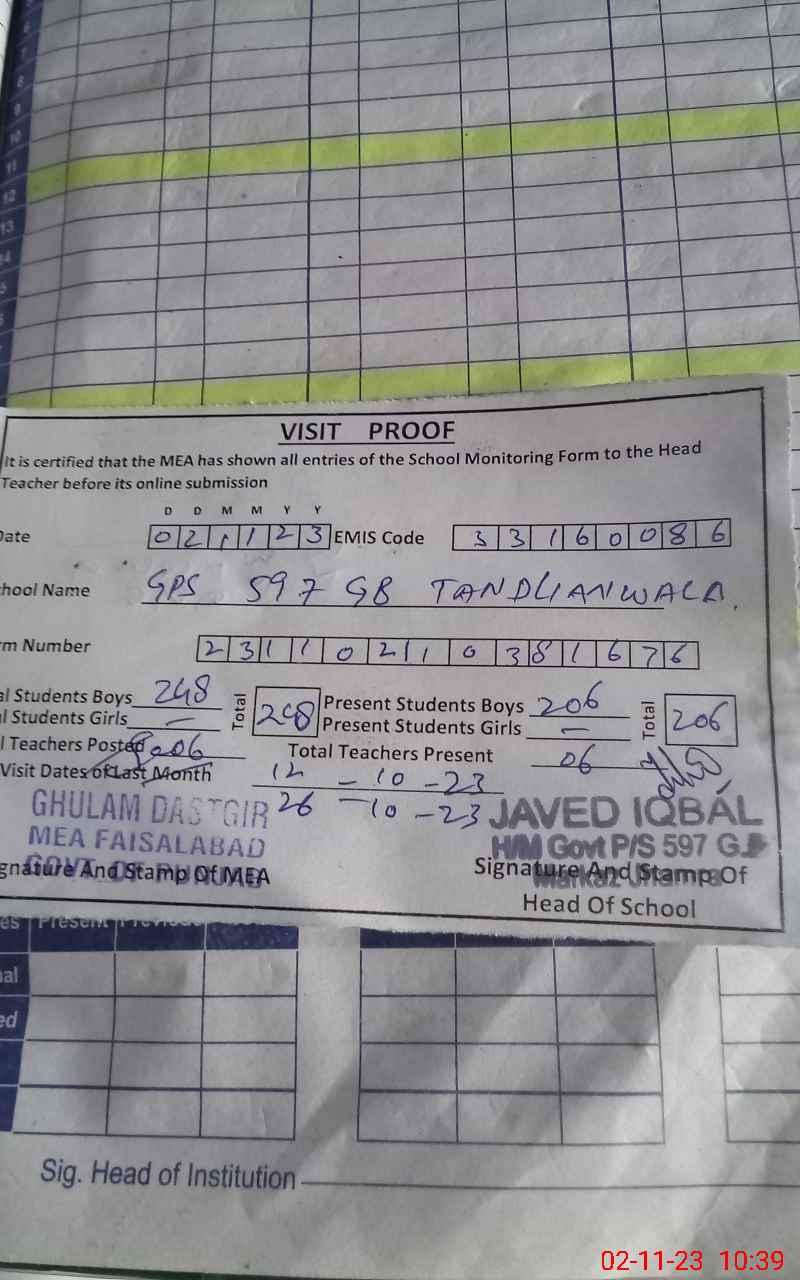 6
7
8
9
10
11
12
13
VISIT PROOF
It is certified that the MEA has shown all entries of the School Monitoring Form to the Head
Teacher before its online submission
D D M M Y Y
Date 0 2 1 1 2 3 EMIS Code 3 3 1 6 0 0 8 6
hool Name GPS 597 GB TANDLIANWALA.
rm Number 2 3 1 1 0 2 1 1 0 3 8 1 6 7 6
al Students Boys 248 Total 248 Present Students Boys 206 Total 206
l Students Girls — Present Students Girls —
l Teachers Posted 06 Total Teachers Present 06
Visit Dates of Last Month 12 - 10 - 23
26 - 10 - 23
GHULAM DASTGIR JAVED IQBAL
MEA FAISALABAD H/M Govt P/S 597 G.B
gnature And Stamp Of MEA Signature And Stamp Of
Head Of School
es Present
al
ed
Sig. Head of Institution
02-11-23 10:39